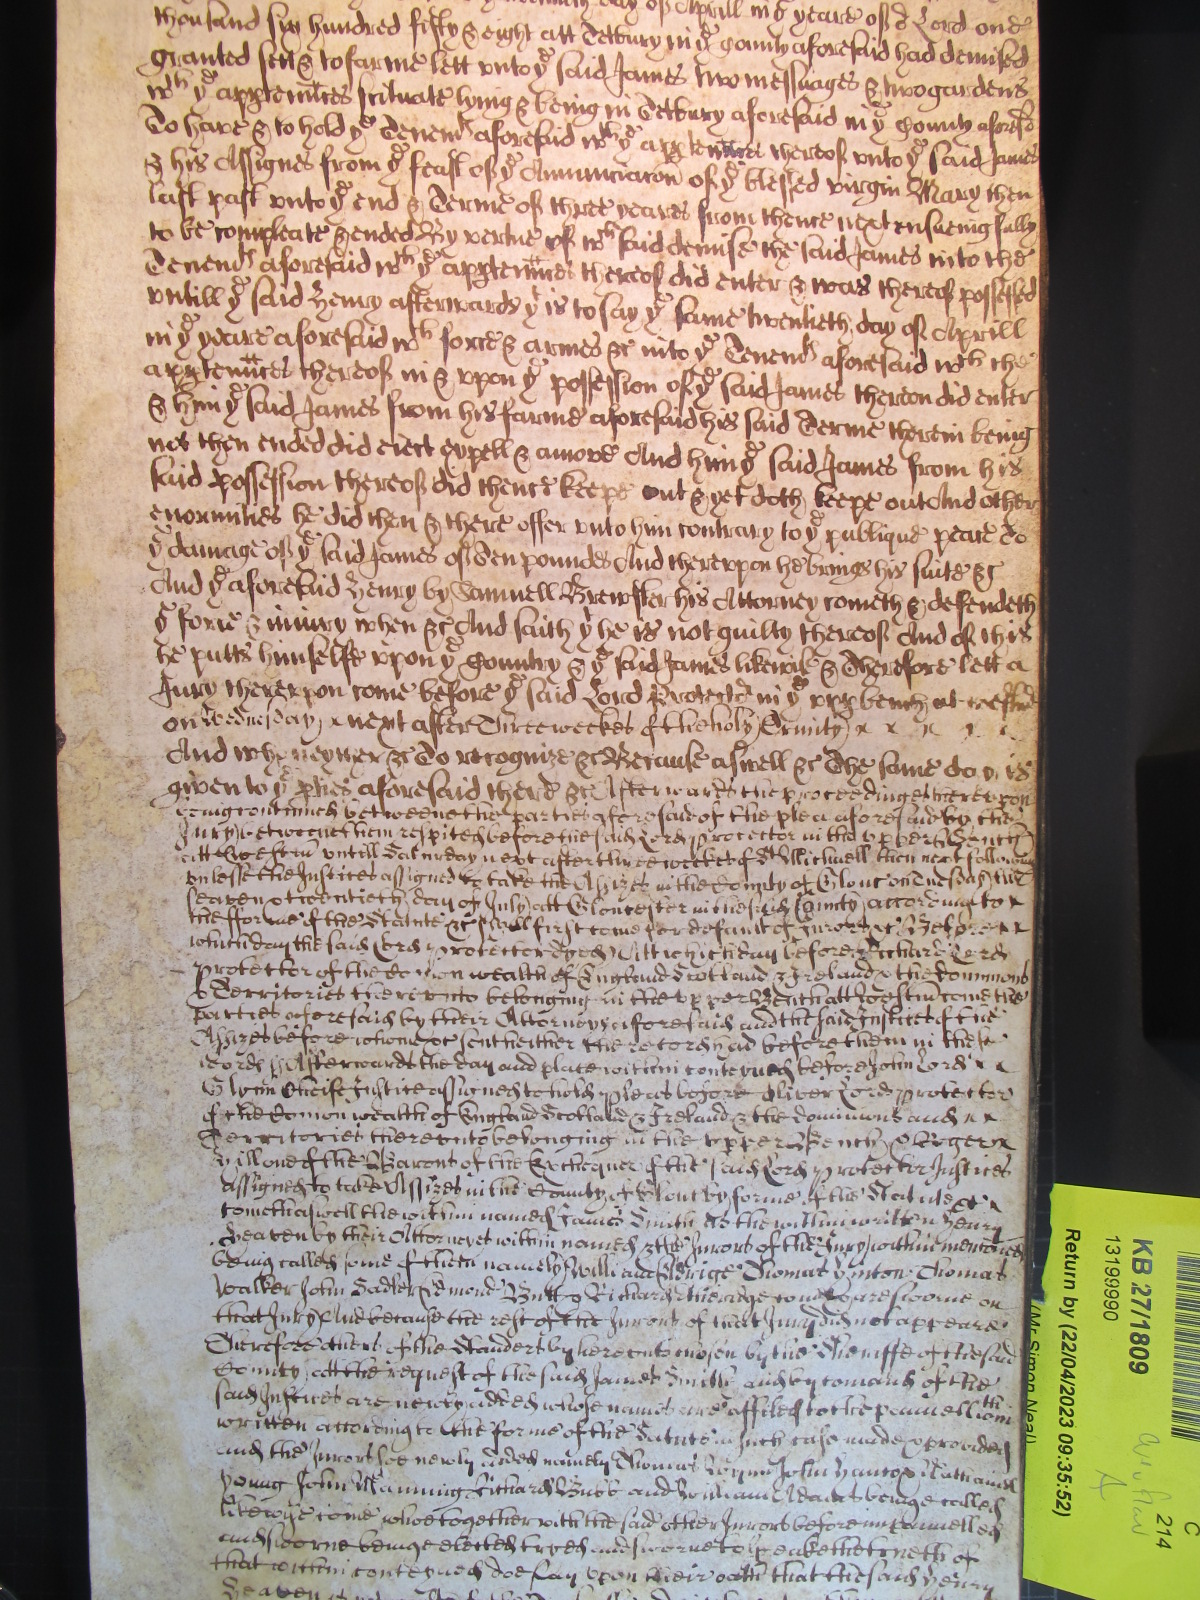 day of Aprill in ye yeare of or Lord one
thousand six hundred fifty & eight att Tetbury in ye County aforesaid had demised
granted sett & to farme lett unto ye said James two messuages & two gardens
wth ye apptennces scituate lying & being in Tetbury aforesaid in ye County aforesd
To have & to hold ye Tenemts aforesaid wth ye apptennces thereof unto ye said James
& his Assignes from ye feast of ye Annunciacon of ye blessed virgin Mary then
last past unto ye end & Terme of three yeares from thence next ensueing fully
to be compleate & ended By vertue of wch said demise the said James into the
Tenemts aforesaid wth ye apptennces thereof did enter & was thereof possessed
untill ye said Henry afterwards yt is to say ye same twentieth day of Aprill
in ye yeare aforesaid wth force & armes &c into ye Tenemts aforesaid wth the
apptennces thereof in & upon ye possession of ye said James thereon did enter
& him ye said James from his farme aforesaid his said Terme therein being
not then ended did eiect expell & amove And him ye said James from his
said possession thereof did thence keepe out & yet doth keepe out And other
enormities he did then & there offer unto him contrary to ye publique peace To
ye damage of ye said James of Ten pounds And thereupon he brings his suite &c
And ye aforesaid Henry by Samuell Brewster his Attorney cometh & defendeth
ye force & iniury when &c And saith yt he is not guilty thereof And of this
he putts himselfe upon ye Country & ye said James likewise & Therefore lett a
Jury thereupon come before ye said Lord Protectr in ye upp bench at Westmr
on Wednesday x next after Three weekes of the holy Trinity x x x x x
And who neyther &c To recognize &c Because aswell &c The same day is
given to ye pties aforesaid there &c Afterwards the proceedings thereupon
being continued betweene the parties aforesaid of the plea aforesaid by the
Jury betweene them respited before the said Lord Protector in the upper Bench
att Westmr untill Saturday next after three weekes of St Michaell then next following
unlesse the Justices assigned to take the Assizes in the County of Glouc on Tuesday the
seaven & twentieth day of July att Gloucester in the said County according to x
the forme of the Statute &c shall first come for default of Jurors &c Before x x
which day the said Lord Protector dyed Att which day before Richard Lord
Protector of the Comon wealth of England Scotland & Ireland & the Dominions
& Territories thereunto belonging in the upper Bench att Westmr come the
parties aforesaid by their Attorneys aforesaid and the said Justices of the
Assizes before whome &c sent hether the record had before them in these
words Afterwards the day and place within conteyned before John Lord x x
Glynn Cheife Justice assigned to hold pleas before Oliver Lord Protector
of the Comon wealth of England Scotland & Ireland & the dominions and x x
Territories thereunto belonging in the upper Bench & Roger x
Hill one of the Barons of the Exchequer of the said Lord Protector Justices
assigned to take Assizes in the County of Glouc by forme of the Statute &c x
cometh aswell the within named James Smith as the within written Henry
Heaven by their Attorneyes within named & the Jurors of the Jury within mencioned
being called some of them namely Willi Thomas Hinton Thomas
Walker John Sadler Edmond Butt & Richard come & are sworne on
that Jury And because the rest of the Jurors of that Jury did not appeare
Therefore others of the Standers by hereunto chosen by the Sheriffe of the said
County att the request of the said James Smith and by comaund of the
said Justices are newly added whose names are affiled to the pannell within
written according to the forme of the Statute in such case made & provided
and the Jurors soe newly added namely Thomas John Nathaniell
Young John Manning Richard and William Adams being called
likewise come whoe together with the said other Jurors before impannelled
and sworne being elected tryed and sworne to speake the treuth of
that within conteyned doe say upon their oath that the said Henry
Heaven
KB 27/1809
13199990
Return by (22/04/2023 09:35:52)
(Mr Simon Neal)
C
214
A